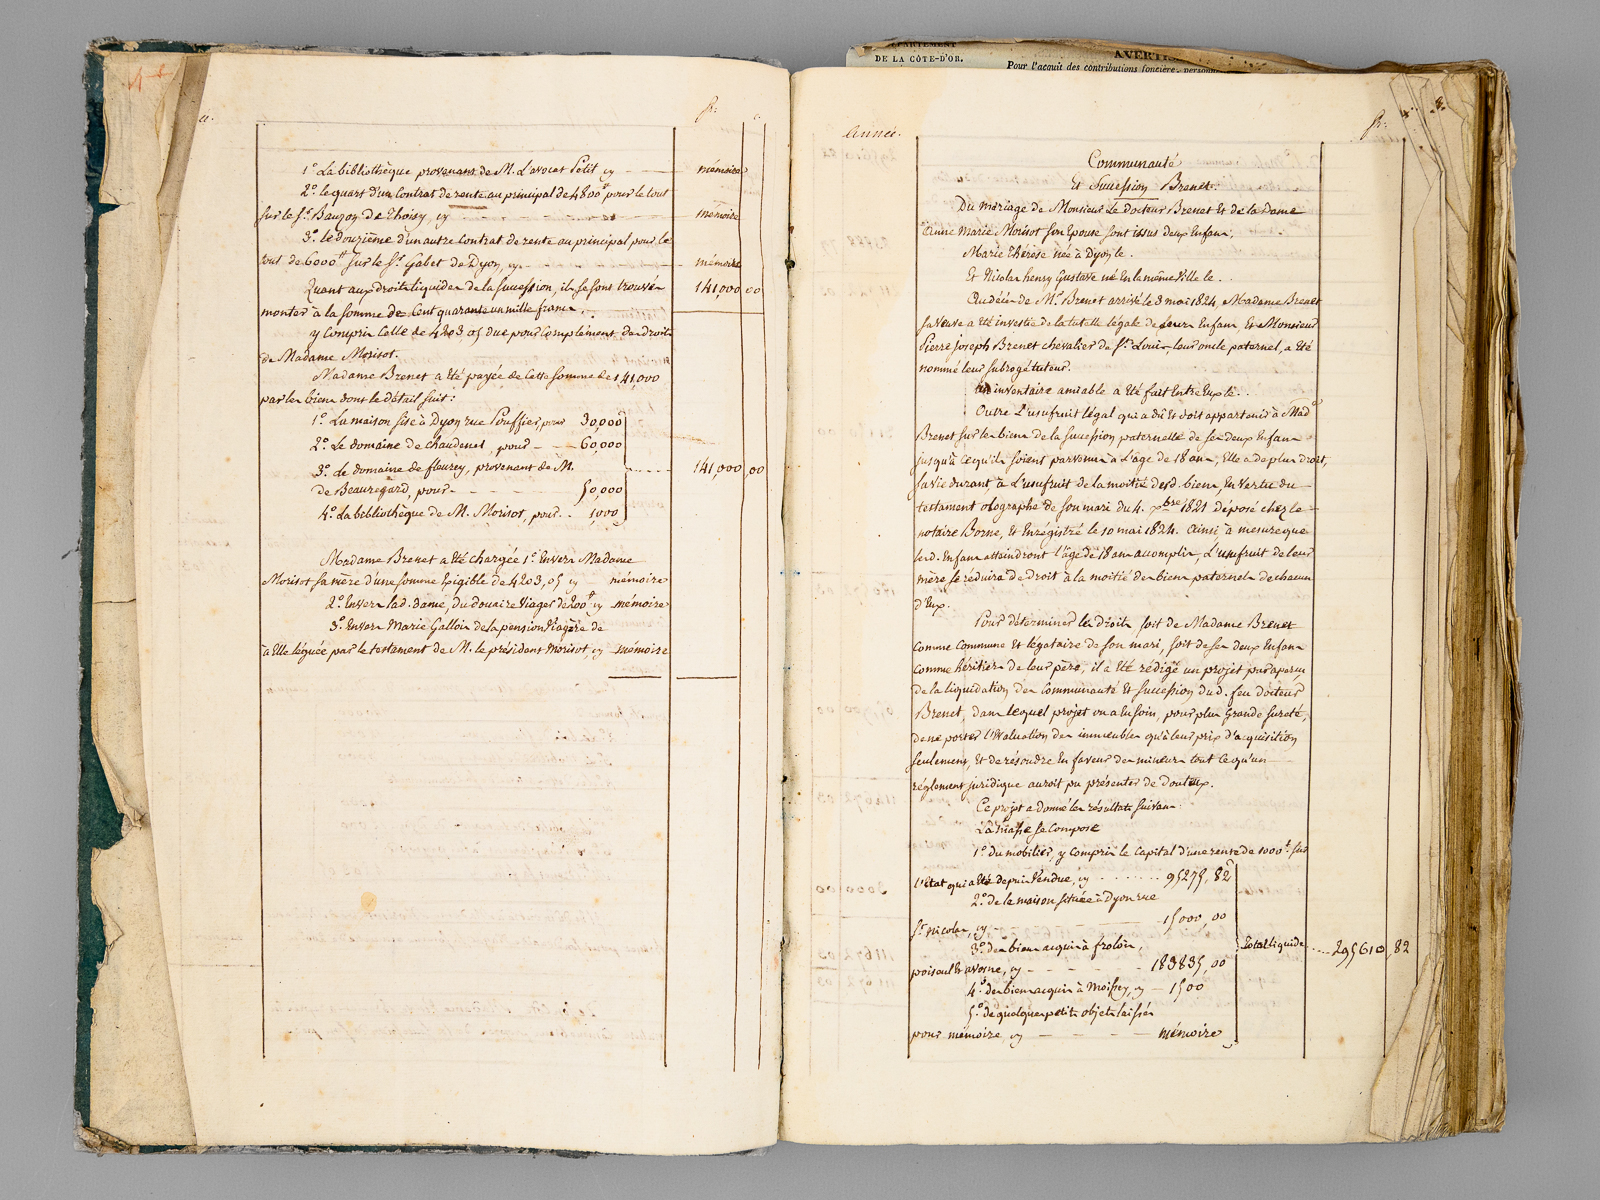 fr. c.
1° La bibliothèque provenant de M. L'avocat Petit cy — mémoire
2° le quart d'un Contrat de rente au principal de 4800# pour le tout
sur le Sr. Bauzon de Thoisy, cy — mémoire
3° le douzième d'un autre contrat de rente au principal pour le
tout de 6000# Sur le Sr. Gabet de Dijon, cy — mémoire
Quant aux droits liquides de la succession, ils se sont trouvés 141,000 00
monter à la somme de Cent quarante un mille francs.
y Compris Celle de 4203,05 due pour Complément des droits
de Madame Morisot.
Madame Brenet a été payée de Cette Somme de 141,000
par les biens dont le détail suit :
1° La maison Sise à Dijon rue Pouffier, pour 30,000
2° Le domaine de Chaudenet, pour — 60,000
3° Le domaine de fleurey, provenant de M. 141,000,00
de Beauregard, pour — 50,000
4° La bibliothèque de M. Morisot, pour.. 1,000
Madame Brenet a été chargée 1° Envers Madame
Morisot sa mère d'une somme Exigible de 4203,05 cy mémoire
2° Envers lad. dame, du douaire Viager de 200# cy mémoire
3° Envers Marie Gallois de la pension Viagère de
à Elle léguée par le testament de M. le président Morisot, cy mémoire
DÉPARTEMENT
DE LA CÔTE-D'OR.
AVERTIS
Pour l'acquit des contributions foncière, personn
Année. fr. c. 3.
Communauté
Et Succession Brenet.
Du mariage de Monsieur Le docteur Brenet Et de la Dame
Anne Marie Morisot son Epouse sont issus deux Enfans,
Marie Thérèse née à Dijon le .
Et Nicolas henry Gustave né En la même Ville le ..
Au décès de Mr. Brenet arrivé le 3 mai 1824, Madame Brenet
sa veuve a été investie de la tutelle légale de leurs Enfans, Et Monsieur
Pierre Joseph Brenet chevalier de St. Louis, leur oncle paternel, a été
nommé leur subrogé tuteur.
Un inventaire amiable a Eté fait Entre Eux le ..
Outre L'usufruit légal qui a dû Et doit appartenir à Made
Brenet Sur les biens de la succession paternelle de ses deux Enfans
jusqu'à ce qu'ils soient parvenus à l'age de 18 ans, Elle a de plus droit,
sa vie durant, à L'usufruit de la moitié desd. biens, En vertu du
testament olographe de son mari du 4. Xbre 1821 déposé chez le
notaire Borne, Et Enrégistré le 10 mai 1824. Ainsi à mesure que
lesd. Enfans atteindront l'âge de 18 ans accomplis, L'usufruit de leur
mère se réduira de droit à la moitié des biens paternels de chacun
d'Eux.
Pour déterminer les Droits soit de Madame Brenet
comme Commune Et légataire de son mari, soit de ses deux Enfans
comme héritiers de leur père, il a Eté rédigé un projet par aperçu
de la liquidation des Communauté Et Succession dud. feu docteur
Brenet, dans lequel projet on a Eu soin, pour plus Grande sureté,
de ne porter l'Evaluation des immeubles qu'à leur prix d'acquisition
seulement, Et de résoudre En faveur des mineurs tout ce qu'un
réglement juridique auroit pu présenter de douteux.
Ce projet a donné les résultats suivans.
La Masse se Compose
1° du mobilier, y compris le Capital d'une rente de 1000# sur
l'état qui a Eté depuis Vendue, cy 95275,82
2° de la maison située à Dijon rue
St. nicolas, cy — 15000,00
3° des biens acquis à frolois, total liquide .... 295610,82
poiseul Et avosne, cy — 183835,00
4° des biens acquis à Moissey, cy — 1500
5° de quelques petits objets laissés
pour mémoire, cy — mémoire